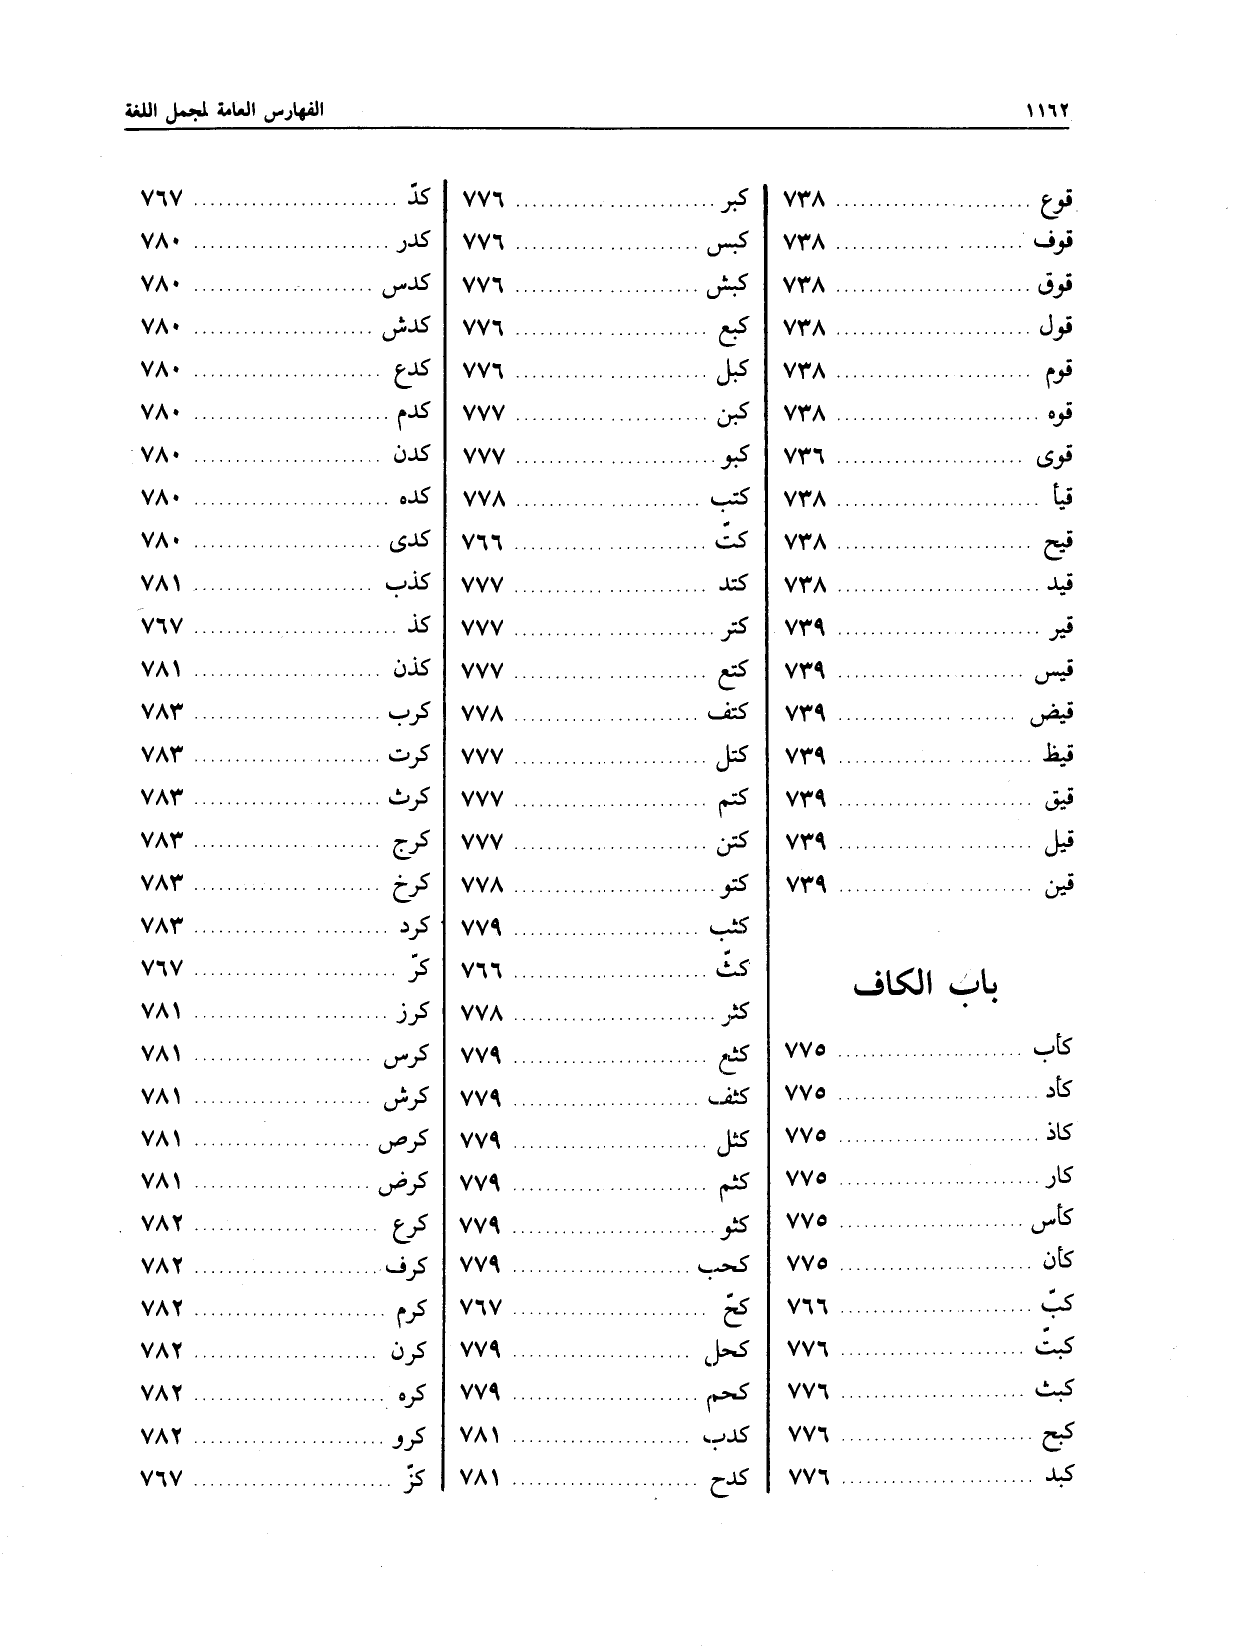 ١١٦٢
الفهارس العامة لمجمل اللغة
قوع ........ ٧٣٨
قوف ........ ٧٣٨
قوق ........ ٧٣٨
قول ........ ٧٣٨
قوم ........ ٧٣٨
قوه ........ ٧٣٨
قوى ........ ٧٣٦
قيأ ........ ٧٣٨
قيح ........ ٧٣٨
قيد ........ ٧٣٨
قير ........ ٧٣٩
قيس ........ ٧٣٩
قيض ........ ٧٣٩
قيظ ........ ٧٣٩
قيق ........ ٧٣٩
قيل ........ ٧٣٩
قين ........ ٧٣٩
باب الكاف
كأب ........ ٧٧٥
كأد ........ ٧٧٥
كاذ ........ ٧٧٥
كار ........ ٧٧٥
كأس ........ ٧٧٥
كأن ........ ٧٧٥
كبّ ........ ٧٦٦
كبتّ ........ ٧٧٦
كبث ........ ٧٧٦
كبح ........ ٧٧٦
كبد ........ ٧٧٦
كبر ........ ٧٧٦
كبس ........ ٧٧٦
كبش ........ ٧٧٦
كبع ........ ٧٧٦
كبل ........ ٧٧٦
كبن ........ ٧٧٧
كبو ........ ٧٧٧
كتب ........ ٧٧٨
كتّ ........ ٧٦٦
كتد ........ ٧٧٧
كتر ........ ٧٧٧
كتع ........ ٧٧٧
كتف ........ ٧٧٨
كتل ........ ٧٧٧
كتم ........ ٧٧٧
كتن ........ ٧٧٧
كتو ........ ٧٧٨
كثب ........ ٧٧٩
كثّ ........ ٧٦٦
كثر ........ ٧٧٨
كثع ........ ٧٧٩
كثف ........ ٧٧٩
كثل ........ ٧٧٩
كثم ........ ٧٧٩
كثو ........ ٧٧٩
كحب ........ ٧٧٩
كخّ ........ ٧٦٧
كحل ........ ٧٧٩
كحم ........ ٧٧٩
كدب ........ ٧٨١
كدح ........ ٧٨١
كدّ ........ ٧٦٧
كدر ........ ٧٨٠
كدس ........ ٧٨٠
كدش ........ ٧٨٠
كدع ........ ٧٨٠
كدم ........ ٧٨٠
كدن ........ ٧٨٠
كده ........ ٧٨٠
كدى ........ ٧٨٠
كذب ........ ٧٨١
كذ ........ ٧٦٧
كذن ........ ٧٨١
كرب ........ ٧٨٣
كرت ........ ٧٨٣
كرث ........ ٧٨٣
كرج ........ ٧٨٣
كرخ ........ ٧٨٣
كرد ........ ٧٨٣
كرّ ........ ٧٦٧
كرز ........ ٧٨١
كرس ........ ٧٨١
كرش ........ ٧٨١
كرص ........ ٧٨١
كرض ........ ٧٨١
كرع ........ ٧٨٢
كرف ........ ٧٨٢
كرم ........ ٧٨٢
كرن ........ ٧٨٢
كره ........ ٧٨٢
كرو ........ ٧٨٢
كزّ ........ ٧٦٧